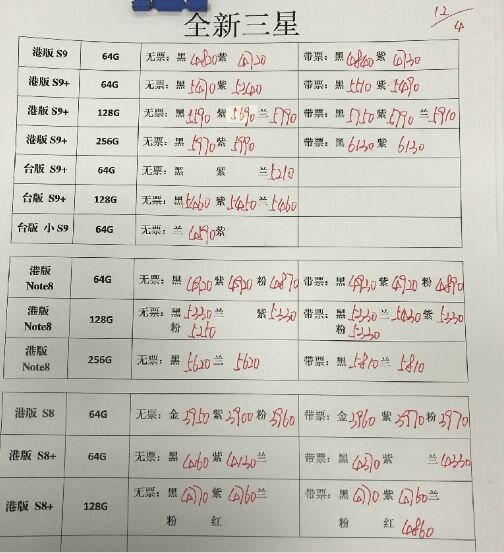 全新三星
12/4
港版 S9 64G 无票：黑 4820 紫 4720 带票：黑 4840 紫 4730
港版 S9+ 64G 无票：黑 5470 紫 5340 带票：黑 5510 紫 5490
港版 S9+ 128G 无票：黑 5590 紫 5690 兰 5790 带票：黑 5750 紫 5790 兰 5910
港版 S9+ 256G 无票：黑 5970 紫 5990 带票：黑 6130 紫 6130
台版 S9+ 64G 无票：黑 紫 兰 5210
台版 S9+ 128G 无票：黑 5460 紫 5450 兰 5460
台版 小 S9 64G 无票：兰 4590 紫
港版 Note8 64G 无票：黑 4920 紫 4920 粉 4870 带票：黑 4930 紫 4920 粉 4890
港版 Note8 128G 无票：黑 5330 兰 紫 5330 带票：黑 5330 兰 5430 紫 5330
粉 5250 粉 5330
港版 Note8 256G 无票：黑 5620 兰 5620 带票：黑 5810 兰 5810
港版 S8 64G 无票：金 3950 紫 3900 粉 3960 带票：金 3960 紫 3970 粉 3970
港版 S8+ 64G 无票：黑 4160 紫 4130 兰 带票：黑 4370 紫 兰 4330
港版 S8+ 128G 无票：黑 4770 紫 4760 兰 带票：黑 4770 紫 4760 兰
粉 红 粉 红 4860